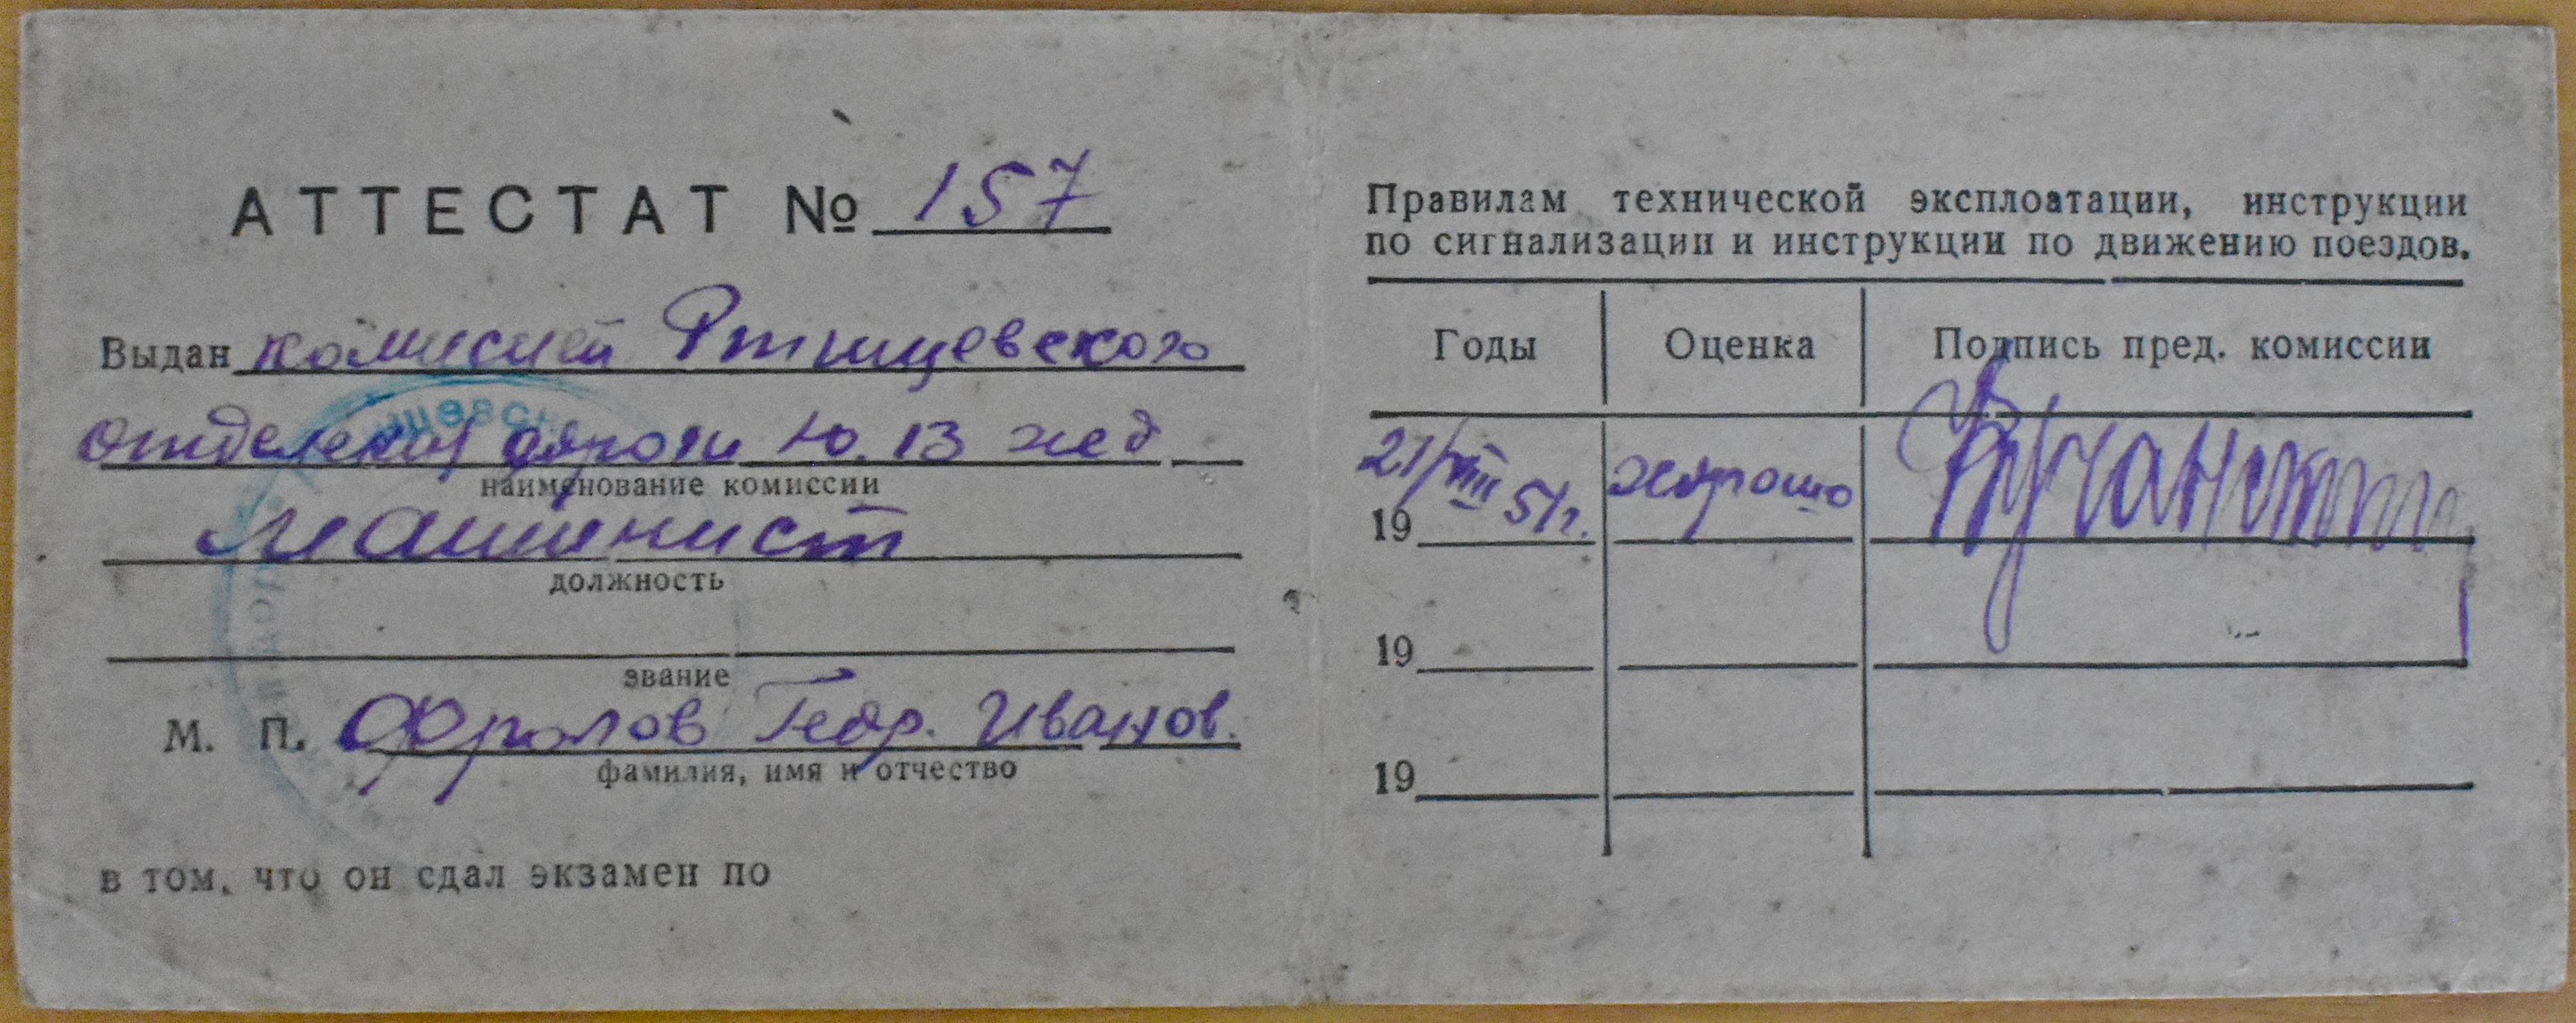 АТТЕСТАТ № 157
Выдан комиссией Ртищевского
отделения дороги Ю. В жел
наименование комиссии
машинист
должность
звание
М. П. Фролов Геор. Иванов.
фамилия, имя и отчество
в том, что он сдал экзамен по
Правилам технической эксплоатации, инструкции
по сигнализации и инструкции по движению поездов.
Годы Оценка Подпись пред. комиссии
21/VIII 51г. хорошо
19
19
19